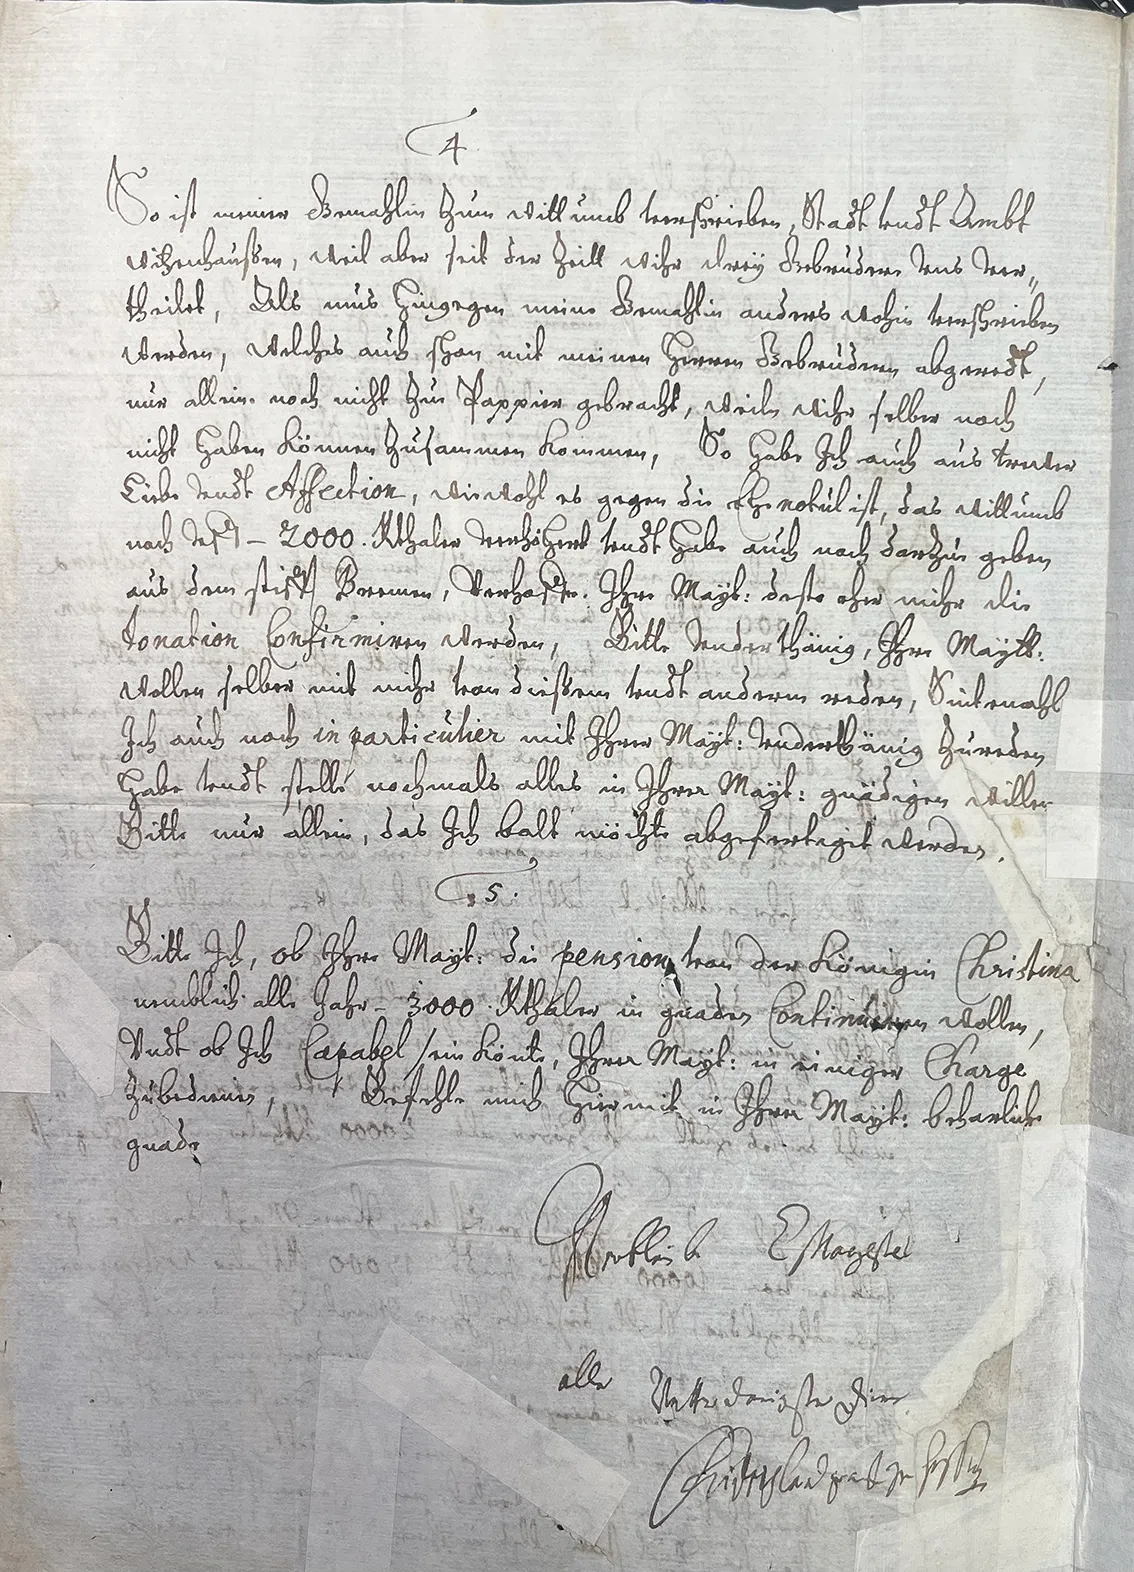 4
So ist meiner Gemahlin zum wittumb verschrieben, Stadt vndt Ambt
witzenhaußen, weil aber seit der Zeitt wihr dreÿ Gebrudere vns ver„
theilet, Als mus hingegen meine Gemahlin anders wohin verschrieben
werden, welches auch schon mit meinen Herren Gebrudern abgeredt,
nur allein noch nicht zu Pappier gebracht, weiln wihr selber noch
nicht haben können zusammen kommen, So habe Ich auch aus trewer
Liebe vndt Affection, wiewohl es gegen die Ehenotul ist, das wittumb
noch vmb – 2000. Rthaler verhöhert vndt habe auch noch darzu geben
aus dem stifft Bremen, verhoffe. Ihre Maÿt: desto eher mihr die
tonation Confirmiren werden, Bitte vnderthänig, Ihre Maÿtt:
wollen selber mit mihr von dießem vndt anderm reden, Sintemahl
Ich auch noch in particulier mit Ihrer Maÿt: vnderthänig zureden
habe vndt stelle nochmals alles in Ihrer Maÿt: gnädigen willen
Bitte nur allein, das Ich balt möchte abgefertigit werden.
5.
Bitte Ich, ob Ihre Maÿt: die pension, von der Königin Christina
nemblich alle Jahr – 3000 Rthaler in gnaden Continuiren wollen,
Vndt ob Ich Capabel sein könte, Ihrer Maÿt: in einiger Charge
zubedienen, Befehle mich hiermit in Ihrer Maÿt: beharliche
gnade
Verbleibe E Mayestet
alle Vntterdenigste Dien